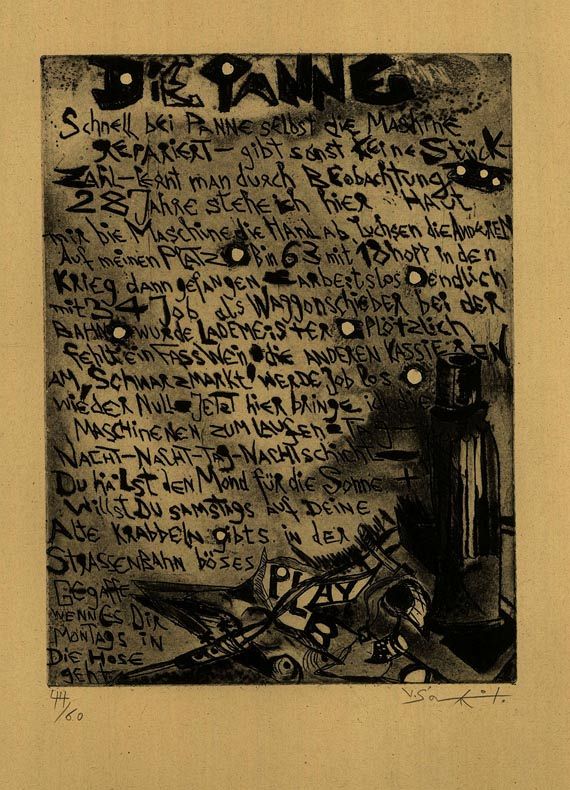 DiE PANNE
Schnell bei PANNE selbst die Maschine
REPARiERT – gibt sonst keine Stück-
ZAHL – lernt man durch BEobachtung
28 Jahre stehe ich hier HAUT
mir die Maschine die HAND Ab luchsen die ANDEREN
AUf meinen PLATZ Bin 63 mit 18 hopp in den
KRiEg dann gefangen – arbeitslos endlich
mit 34 Job als Waggonschieber bei der
BAHN wurde LADEMEiSTER plötzlich
fehlt ein FASS Wein die ANDEREN KASSiEREN
AM SCHWARZMARkt werde Job los
wieder Null – Jetzt hier bringe ich die
MASCHiNENEN ZUM LAUfEN – Tag –
NACHT – NACHT – TAg – NACHTSCHicht
Du hälst den Mond für die Sonne +
Willst DU SAMSTAgs auf DEiNE
Alte KRABBELN gibts in der
STRASSENBAHN böses
GEGAffE
WENN ES DiR
MONTAgs iN
Die Hose
geht
PLAY
44/60